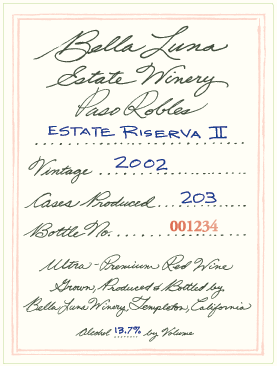 Bella Luna
Estate Winery
Paso Robles
ESTATE RISERVA II
Vintage 2002
Cases Produced 203
Bottle No. 001234
Ultra-Premium Red Wine
Grown, Produced & Bottled by
Bella Luna Winery, Templeton, California
Alcohol 13.7% by Volume